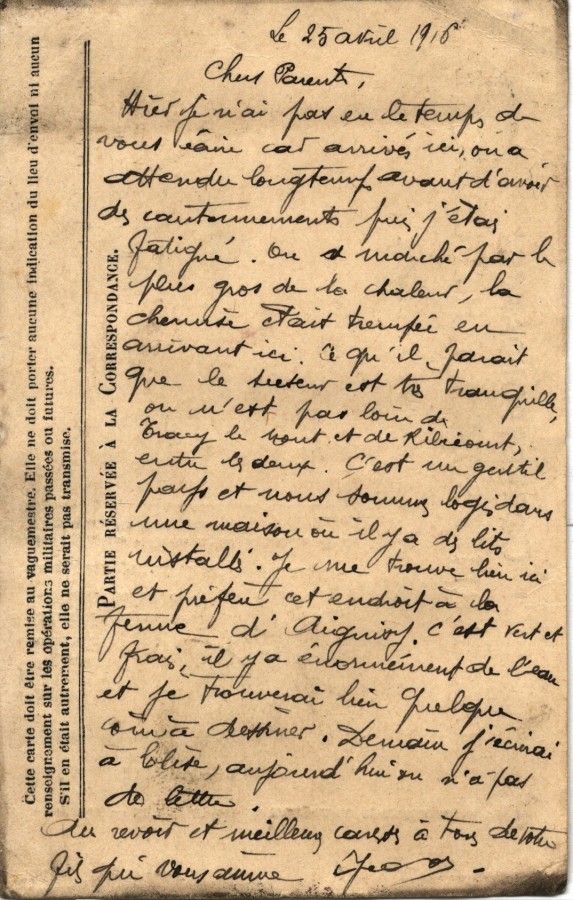 Cette carte doit être remise au vaguemestre. Elle ne doit porter aucune indication du lieu d'envoi ni aucun
renseignement sur les opérations militaires passées ou futures.
S'il en était autrement, elle ne serait pas transmise.
PARTIE RÉSERVÉE À LA CORRESPONDANCE.
Le 25 avril 1916
Chers Parents,
Hier je n'ai pas eu le temps de
vous écrire car arrivés ici, on a
attendu longtemps avant d'avoir
des cantonnements puis j'étais
fatigué. On a marché par le
plus gros de la chaleur, la
chemise était trempée en
arrivant ici. Ce qu'il parait
que le secteur est très tranquille,
on n'est pas loin de
Tracy le mont et de Ribécourt,
entre les deux. C'est un gentil
pays et nous sommes logés dans
une maison où il y a des lits
installés. Je me trouve bien ici
et préfère cet endroit à la
ferme d'. C'est vert et
frais, il y a énormément de l'eau
et je trouverai bien quelque
coin à dessiner. Demain j'écrirai
à, aujourd'hui on n'a pas
de lettre.
Au revoir et meilleures caresses à tous de votre
fils qui vous aime